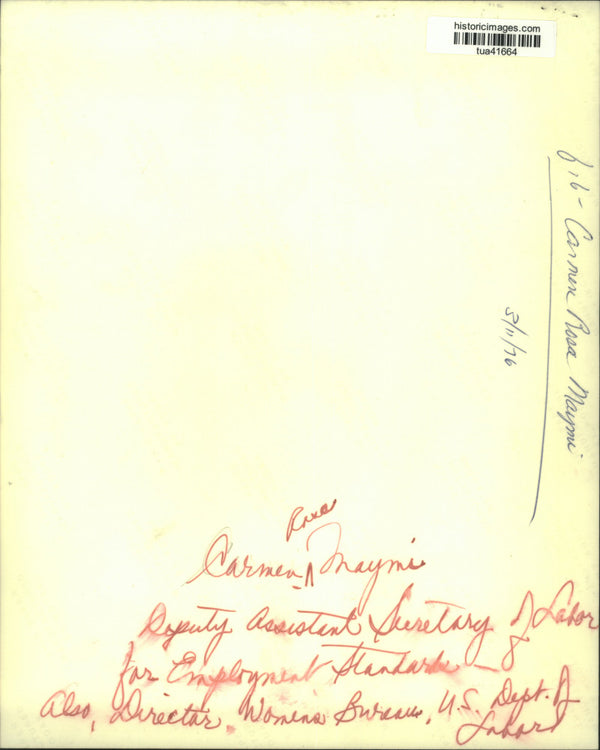 historicimages.com
tua41664
Carmen Rosa Maymi
3/11/76
Rosa
Carmen ^ Maymi
Deputy Assistant Secretary of Labor
for Employment Standards —
Also, Director, Womens Bureau, U.S. Dept. of
Labor